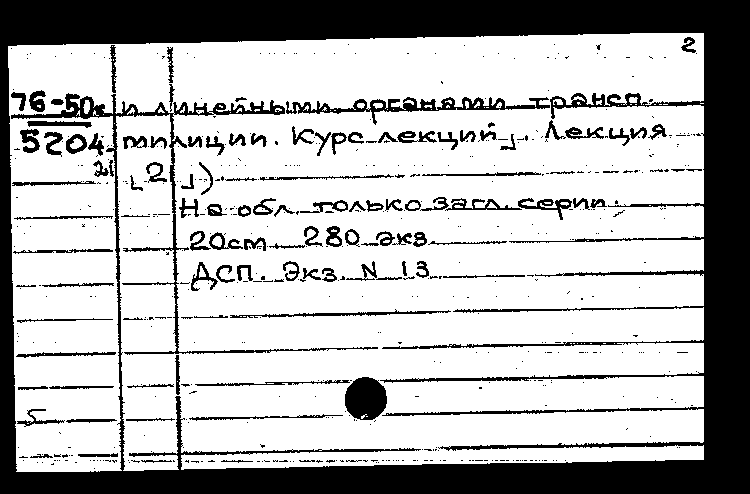 2
76-50к и линейными органами трансп.
5204 милиции. Курс лекций⌋. Лекция
21 ⌊2⌋)
На обл. только загл. серии.
20см. 280 экз.
ДСП. Экз. N 13
5